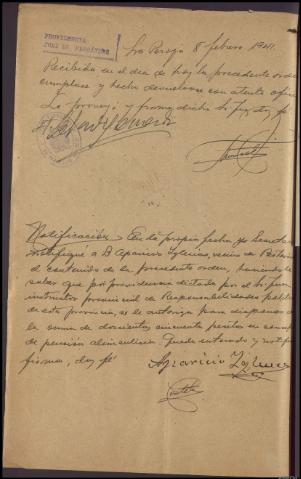 PROVIDENCIA
8 febrero 1941
Recibida en el dia de hoy la precedente orden
cumplase y hecho devuelvase con atento oficio
Lo proveyó y firma dicho Sr Juez, doy fé
Notificación En la propia fecha yo Secretario
notifiqué á D Aparicio Iglesias, vecino de
el contenido de la precedente orden, haciendole
saber que por providencia dictada por el Sr Juez
instructor provincial de Responsabilidades politicas
de esta provincia, se le autoriza para disponer de
la suma de doscientas cincuenta pesetas en concepto
de pensión alimenticia. Queda enterado y
firma, doy fé
Aparicio Iglesias